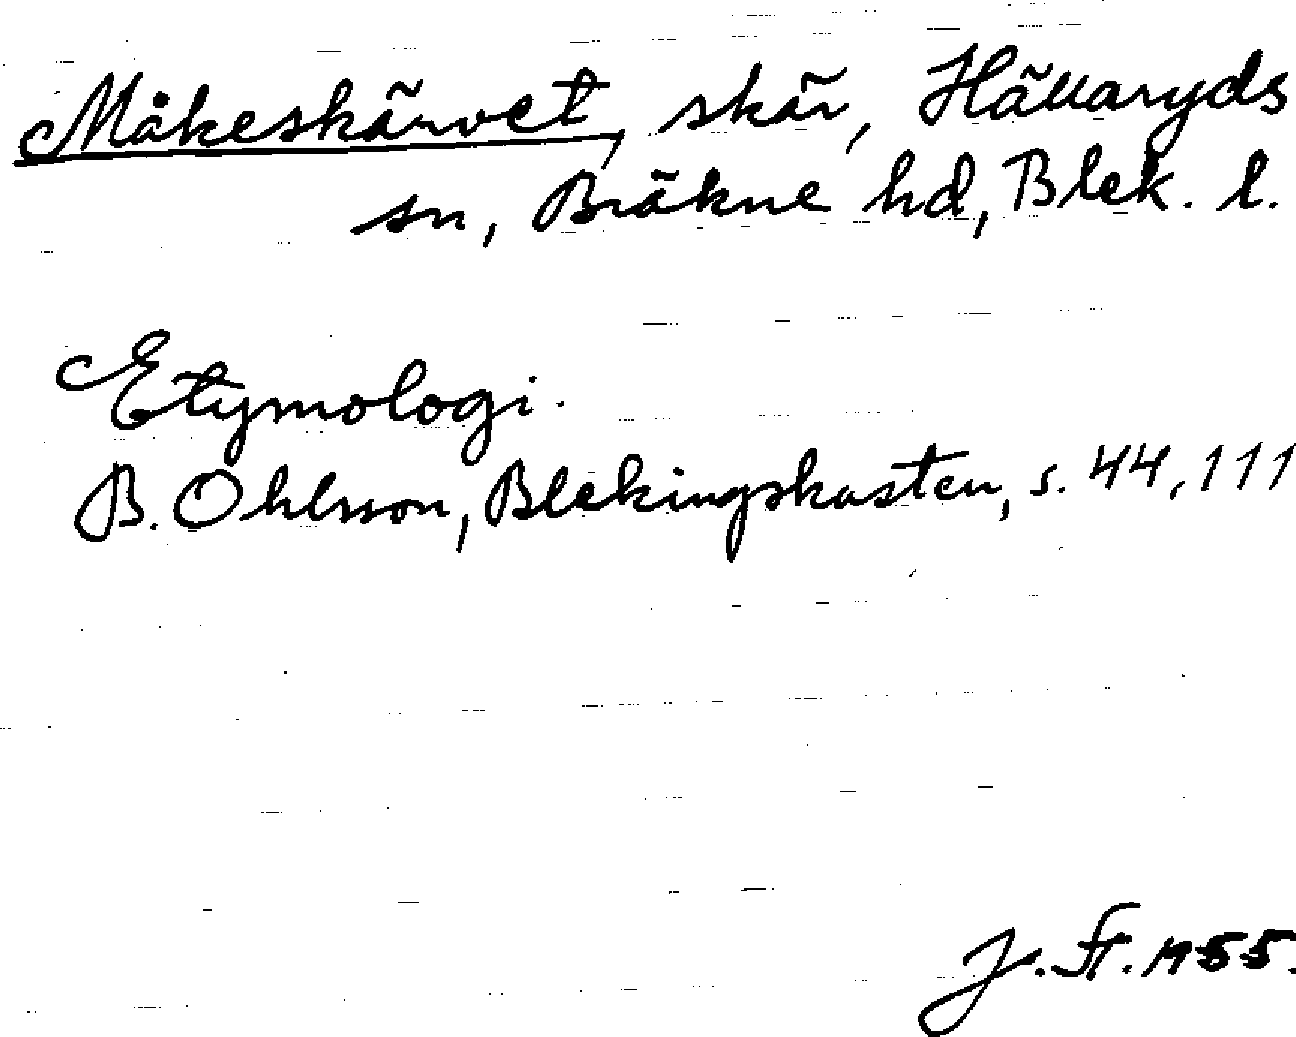 Måkeskärvet, skär, Hällaryds
sn, Bräkne hd, Blek. l.
Etymologi.
B. Ohlsson, Blekingskusten, s. 44, 111
J. Ft. 1955.